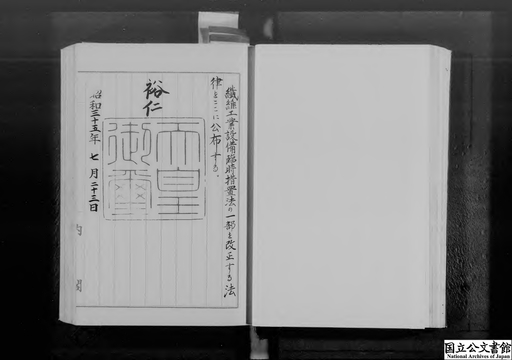 繊維工業設備臨時措置法の一部を改正する法
律をここに公布する。
裕仁
天皇
御璽
昭和三十五年 七月二十三日
国立公文書館
National Archives of Japan